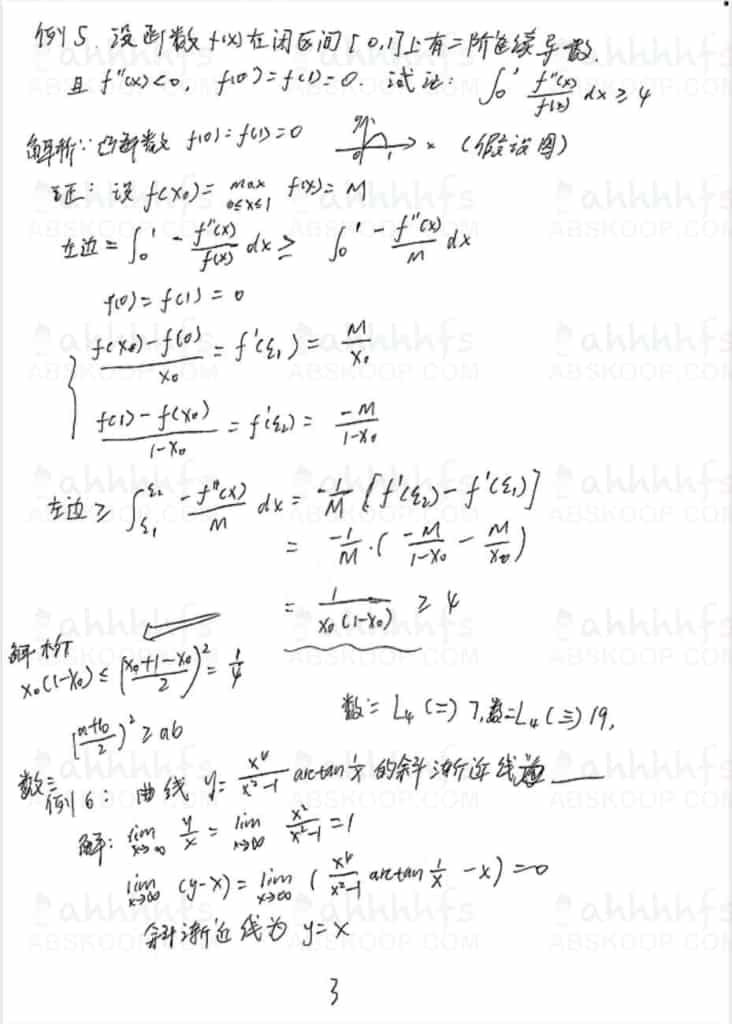 例5. 设函数 f(x) 在闭区间 [0,1] 上有二阶连续导数
且 f''(x)<0, f(0)=f(1)=0. 试证: ∫₀¹ f''(x)/f(x) dx ≥ 4
解析: 凸函数 f(0)=f(1)=0 y 0 1 x (假设图)
证: 设 f(x₀) = max_{0≤x≤1} f(x) = M
左边 = ∫₀¹ -f''(x)/f(x) dx ≥ ∫₀¹ -f''(x)/M dx
f(0)=f(1)=0
{ (f(x₀)-f(0))/x₀ = f'(ξ₁) = M/x₀
(f(1)-f(x₀))/(1-x₀) = f'(ξ₂) = -M/(1-x₀)
左边 ≥ ∫_{ξ₁}^{ξ₂} -f''(x)/M dx = -1/M [f'(ξ₂)-f'(ξ₁)]
= -1/M · (-M/(1-x₀) - M/x₀)
= 1/(x₀(1-x₀)) ≥ 4
解析
x₀(1-x₀) ≤ [(x₀+1-x₀)/2]² = 1/4
[(a+b)/2]² ≥ ab
数二 L₄ (二) 7, 数二 L₄ (三) 19,
数二
例6: 曲线 y = x⁴/(x²-1) arctan 1/x 的斜渐近线为
解: lim_{x→∞} y/x = lim_{x→∞} x²/(x²-1) = 1
lim_{x→∞} (y-x) = lim_{x→∞} (x⁴/(x²-1) arctan 1/x - x) = 0
斜渐近线为 y=x
3
ahhhhfs
ABSKOOP.COM